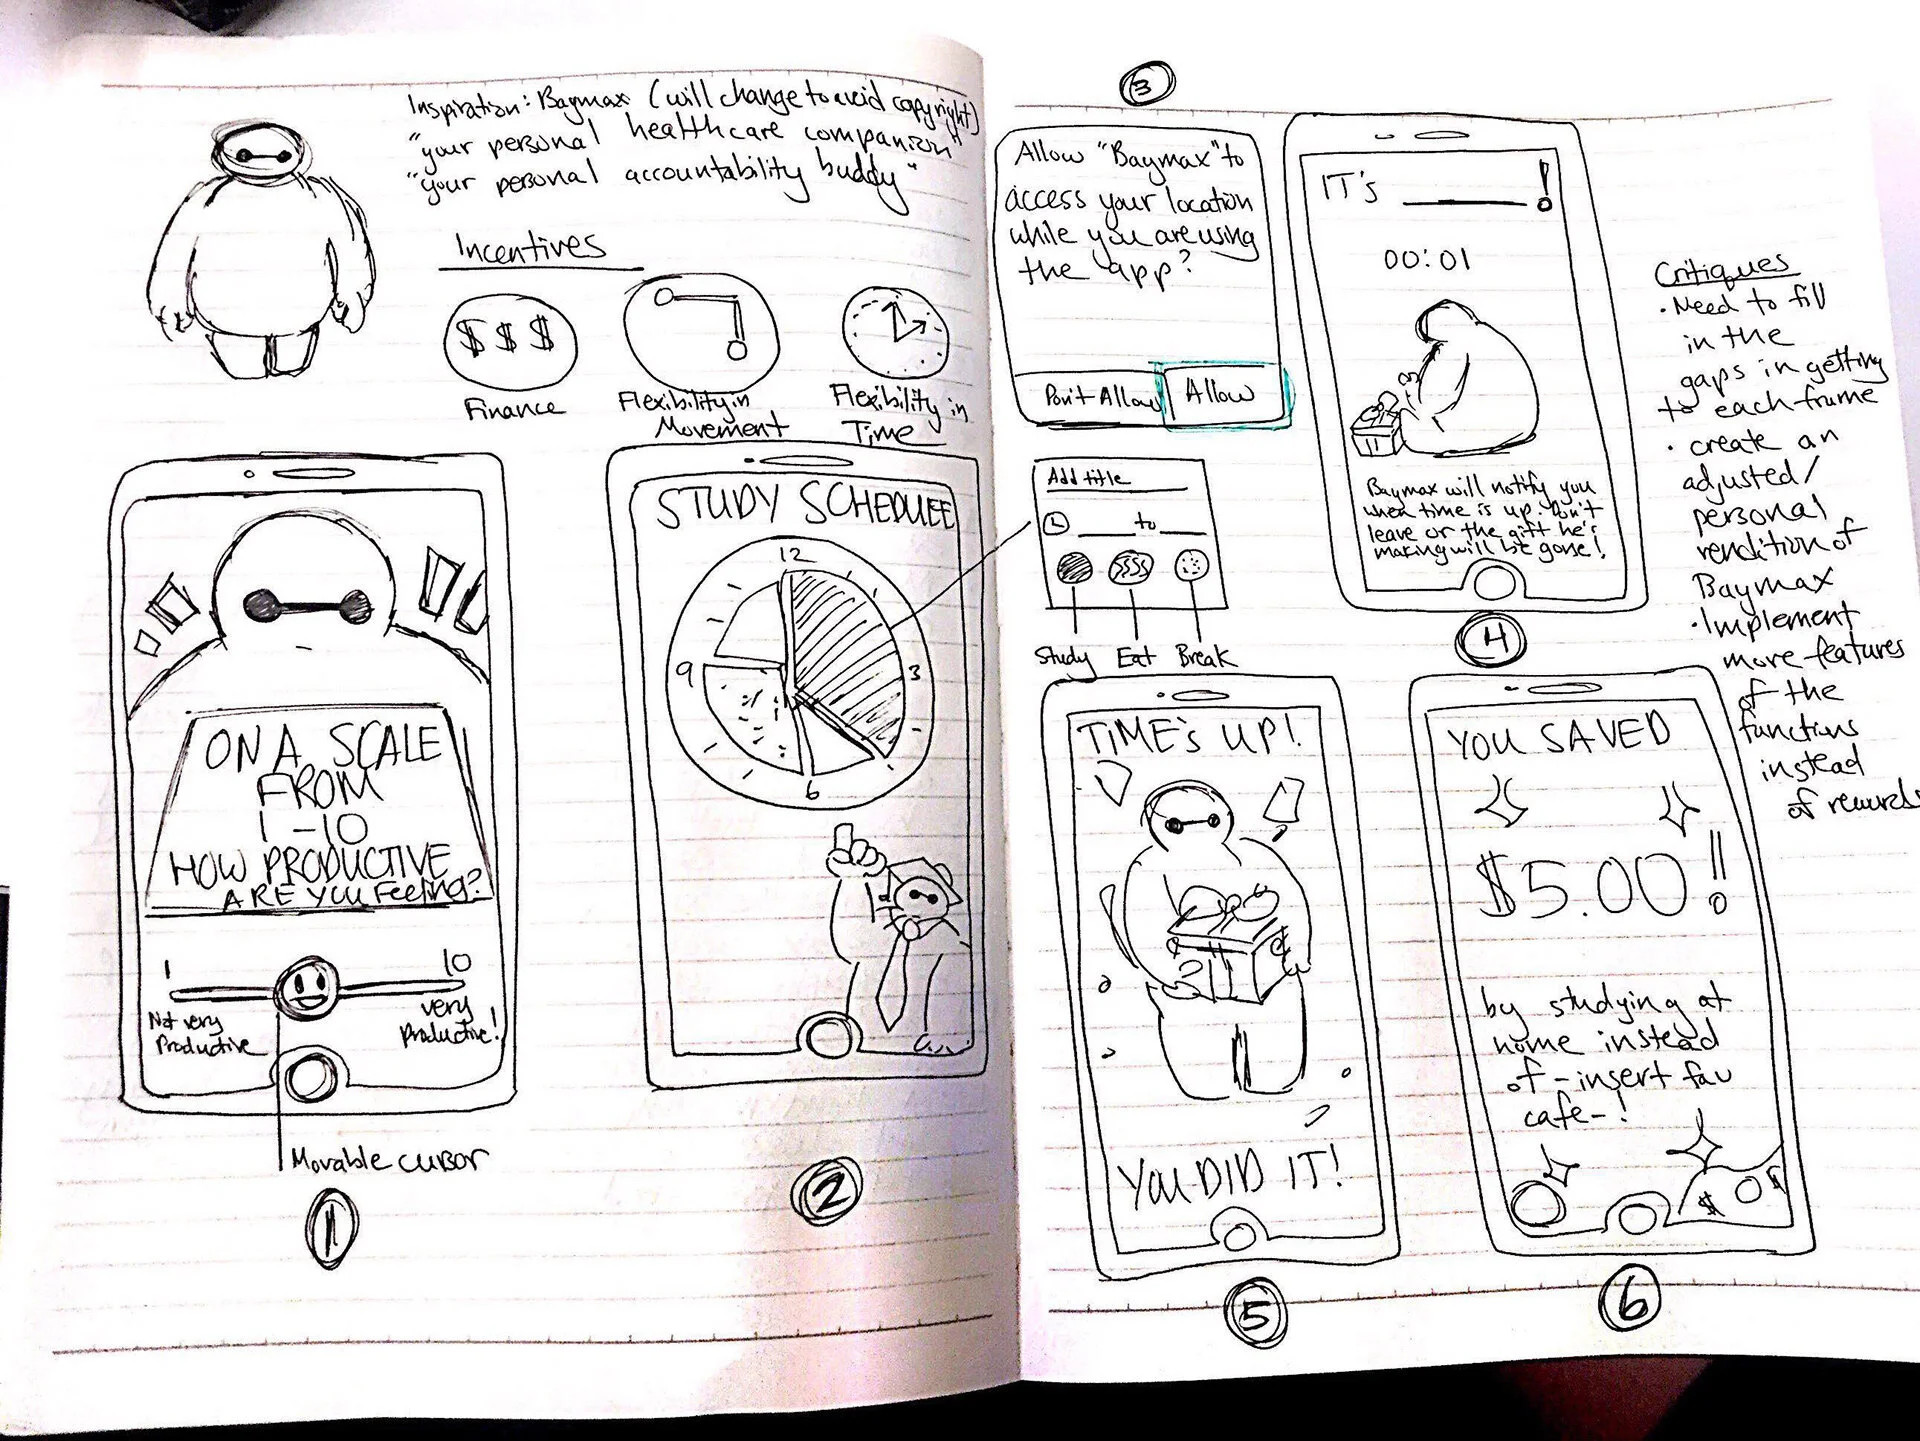 Inspiration: Baymax (will change to avoid copyright)
"your personal healthcare companion"
"your personal accountability buddy"
Incentives
$ $ $
Finance
Flexibility in
Movement
Flexibility in
Time
ON A SCALE
FROM
1 - 10
HOW PRODUCTIVE
ARE YOU Feeling?
1
10
Not very
Productive
very
Productive!
Movable cursor
1
STUDY SCHEDULE
12
3
6
9
2
3
Allow "Baymax" to
access your location
while you are using
the app?
Don't Allow
Allow
Add title
to
Study
Eat
Break
IT'S ______!
00:01
Baymax will notify you
when time is up. Don't
leave or the gift he's
making will be gone!
4
TIME'S UP!
YOU DID IT!
5
YOU SAVED
$5.00!!
by studying at
home instead
of - insert fav
cafe - !
$
$
6
Critiques
· Need to fill
in the
gaps in getting
to each frame
· create an
adjusted/
personal
rendition of
Baymax
· Implement
more features
of the
functions
instead
of rewards